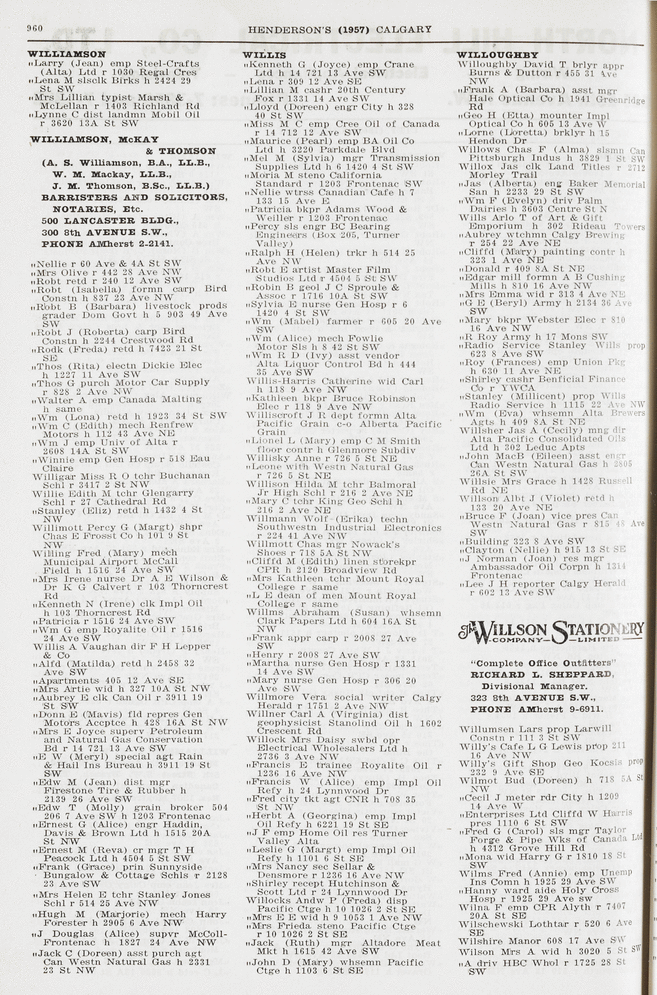 960
HENDERSON'S (1957) CALGARY
WILLIAMSON
„Larry (Jean) emp Steel-Crafts
(Alta) Ltd r 1030 Regal Cres
„Lena M slsclk Birks h 2424 29
St SW
„Mrs Lillian typist Marsh &
McLellan r 1403 Richland Rd
„Lynne C dist landmn Mobil Oil
r 3620 13A St SW
WILLIAMSON, McKAY
& THOMSON
(A. S. Williamson, B.A., LL.B.,
W. M. Mackay, LL.B.,
J. M. Thomson, B.Sc., LL.B.)
BARRISTERS AND SOLICITORS,
NOTARIES, Etc.
500 LANCASTER BLDG.,
300 8th AVENUE S.W.,
PHONE AMherst 2-2141.
„Nellie r 60 Ave & 4A St SW
„Mrs Olive r 442 28 Ave NW
„Robt retd r 240 12 Ave SW
„Robt (Isabella) formn carp Bird
Constn h 837 23 Ave NW
„Robt B (Barbara) livestock prods
grader Dom Govt h 5 903 49 Ave
SW
„Robt J (Roberta) carp Bird
Constn h 2244 Crestwood Rd
„Rodk (Freda) retd h 7423 21 St
SE
„Thos (Rita) electn Dickie Elec
h 1227 11 Ave SW
„Thos G purch Motor Car Supply
r 828 2 Ave NW
„Walter A emp Canada Malting
h same
„Wm (Lona) retd h 1923 34 St SW
„Wm C (Edith) mech Renfrew
Motors h 112 43 Ave NE
„Wm J emp Univ of Alta r
2608 14A St SW
„Winnie emp Gen Hosp r 518 Eau
Claire
Willigar Miss R O tchr Buchanan
Schl r 3417 2 St NW
Willie Edith M tchr Glengarry
Schl r 27 Cathedral Rd
„Stanley (Eliz) retd h 1432 4 St
NW
Willimott Percy G (Margt) shpr
Chas E Frosst Co h 101 9 St
NW
Willing Fred (Mary) mech
Municipal Airport McCall
Field h 1516 24 Ave SW
„Mrs Irene nurse Dr A E Wilson &
Dr K G Calvert r 103 Thorncrest
Rd
„Kenneth N (Irene) clk Impl Oil
h 103 Thorncrest Rd
„Patricia r 1516 24 Ave SW
„Wm G emp Royalite Oil r 1516
24 Ave SW
Willis A Vaughan dir F H Lepper
& Co
„Alfd (Matilda) retd h 2458 32
Ave SW
„Apartments 405 12 Ave SE
„Mrs Artie wid h 327 10A St NW
„Aubrey E clk Can Oil r 3911 19
St SW
„Donn E (Mavis) fld repres Gen
Motors Accptce h 428 16A St NW
„Mrs E Joyce superv Petroleum
and Natural Gas Conservation
Bd r 14 721 13 Ave SW
„E W (Meryl) special agt Rain
& Hail Ins Bureau h 3911 19 St
SW
„Edw M (Jean) dist mgr
Firestone Tire & Rubber h
2139 26 Ave SW
„Edw T (Molly) grain broker 504
206 7 Ave SW h 1203 Frontenac
„Ernest G (Alice) engr Haddin,
Davis & Brown Ltd h 1515 20A
St NW
„Ernest M (Reva) cr mgr T H
Peacock Ltd h 4504 5 St SW
„Frank (Grace) prin Sunnyside
Bungalow & Cottage Schls r 2128
23 Ave SW
„Mrs Helen E tchr Stanley Jones
Schl r 514 25 Ave NW
„Hugh M (Marjorie) mech Harry
Forester h 2905 6 Ave NW
„J Douglas (Alice) supvr McColl-
Frontenac h 1827 24 Ave NW
„Jack C (Doreen) asst purch agt
Can Westn Natural Gas h 2331
23 St NW
WILLIS
„Kenneth G (Joyce) emp Crane
Ltd h 14 721 13 Ave SW
„Lena r 309 12 Ave SE
„Lillian M cashr 20th Century
Fox r 1331 14 Ave SW
„Lloyd (Doreen) engr City h 328
40 St SW
„Miss M C emp Cree Oil of Canada
r 14 712 12 Ave SW
„Maurice (Pearl) emp BA Oil Co
Ltd h 3220 Parkdale Blvd
„Mel M (Sylvia) mgr Transmission
Supplies Ltd h 6 1420 4 St SW
„Moria M steno California
Standard r 1203 Frontenac SW
„Nellie wtrss Canadian Cafe h 7
133 15 Ave E
„Patricia bkpr Adams Wood &
Weiller r 1203 Frontenac
„Percy sls engr BC Bearing
Engineers (Box 205, Turner
Valley)
„Ralph H (Helen) trkr h 514 25
Ave NW
„Robt E artist Master Film
Studios Ltd r 4504 5 St SW
„Robin B geol J C Sproule &
Assoc r 1716 10A St SW
„Sylvia E nurse Gen Hosp r 6
1420 4 St SW
„Wm (Mabel) farmer r 605 20 Ave
SW
„Wm (Alice) mech Fowlie
Motor Sls h 8 42 St SW
„Wm R D (Ivy) asst vendor
Alta Liquor Control Bd h 444
35 Ave SW
Willis-Harris Catherine wid Carl
h 118 9 Ave NW
„Kathleen bkpr Bruce Robinson
Elec r 118 9 Ave NW
Williscroft J R dept formn Alta
Pacific Grain c-o Alberta Pacific
Grain
„Lionel L (Mary) emp C M Smith
floor contr h Glenmore Subdiv
Willisky Anne r 726 5 St NE
„Leone with Westn Natural Gas
r 726 5 St NE
Willison Hilda M tchr Balmoral
Jr High Schl r 216 2 Ave NE
„Mary C tchr King Geo Schl h
216 2 Ave NE
Willmann Wolf (Erika) techn
Southwestn Industrial Electronics
r 224 41 Ave NW
Willmott Chas mgr Nowack's
Shoes r 718 5A St NW
„Cliffd M (Edith) linen storekpr
CPR h 2120 Broadview Rd
„Mrs Kathleen tchr Mount Royal
College r same
„L E dean of men Mount Royal
College r same
Willms Abraham (Susan) whsemn
Clark Papers Ltd h 604 16A St
NW
„Frank appr carp r 2008 27 Ave
SW
„Henry r 2008 27 Ave SW
„Martha nurse Gen Hosp r 1331
14 Ave SW
„Mary nurse Gen Hosp r 306 20
Ave SW
Willmore Vera social writer Calgy
Herald r 1751 2 Ave NW
Willner Carl A (Virginia) dist
geophysicist Stanolind Oil h 1602
Crescent Rd
Willock Mrs Daisy swbd opr
Electrical Wholesalers Ltd h
2736 3 Ave NW
„Francis E trainee Royalite Oil r
1236 16 Ave NW
„Francis W (Alice) emp Impl Oil
Refy h 24 Lynnwood Dr
„Fred city tkt agt CNR h 708 35
St NW
„Herbt A (Georgina) emp Impl
Oil Refy h 6221 19 St SE
„J F emp Home Oil res Turner
Valley Alta
„Leslie G (Margt) emp Impl Oil
Refy h 1101 6 St SE
„Mrs Nancy sec Sellar &
Densmore r 1236 16 Ave NW
„Shirley recept Hutchinson &
Scott Ltd r 24 Lynnwood Dr
Willocks Andw P (Freda) disp
Pacific Ctge h 10 1026 2 St SE
„Mrs E E wid h 9 1053 1 Ave NW
„Mrs Frieda steno Pacific Ctge
r 10 1026 2 St SE
„Jack (Ruth) mgr Altadore Meat
Mkt h 1615 42 Ave SW
„John D (Mary) whsemn Pacific
Ctge h 1103 6 St SE
WILLOUGHBY
Willoughby David T brlyr appr
Burns & Dutton r 455 31 Ave
NW
„Frank A (Barbara) asst mgr
Hale Optical Co h 1941 Greenridge
Rd
„Geo H (Etta) mounter Impl
Optical Co h 605 13 Ave W
„Lorne (Loretta) brklyr h 15
Hendon Dr
Willows Chas F (Alma) slsmn Can
Pittsburgh Indus h 3829 1 St SW
Willox Jas clk Land Titles r 2712
Morley Trail
„Jas (Alberta) eng Baker Memorial
San h 2233 29 St SW
„Wm F (Evelyn) driv Palm
Dairies h 3603 Centre St N
Wills Arlo T of Art & Gift
Emporium h 302 Rideau Towers
„Aubrey wtchmn Calgy Brewing
r 254 22 Ave NE
„Cliffd (Mary) painting contr h
323 1 Ave NE
„Donald r 409 8A St NE
„Edgar mill formn A B Cushing
Mills h 810 16 Ave NW
„Mrs Emma wid r 313 4 Ave NE
„G E (Beryl) Army h 2134 36 Ave
SW
„Mary bkpr Webster Elec r 810
16 Ave NW
„R Roy Army h 17 Mons SW
„Radio Service Stanley Wills prop
623 8 Ave SW
„Roy (Frances) emp Union Pkg
h 630 11 Ave NE
„Shirley cashr Benficial Finance
Co r YWCA
„Stanley (Millicent) prop Wills
Radio Service h 1115 22 Ave NW
„Wm (Eva) whsemn Alta Brewers
Agts h 409 8A St NE
Willsher Jas A (Cecily) mng dir
Alta Pacific Consolidated Oils
Ltd h 302 Leduc Apts
„John MacB (Eileen) asst engr
Can Westn Natural Gas h 2805
26A St SW
Willsie Mrs Grace h 1428 Russell
Rd NE
Willson Albt J (Violet) retd h
133 20 Ave NE
„Bruce F (Joan) vice pres Can
Westn Natural Gas r 815 48 Ave
SW
„Building 323 8 Ave SW
„Clayton (Nellie) h 915 13 St SE
„J Norman (Joan) res mgr
Ambassador Oil Corpn h 1314
Frontenac
„Lee J H reporter Calgy Herald
r 602 13 Ave SW
The WILLSON STATIONERY
COMPANY LIMITED
"Complete Office Outfitters"
RICHARD L. SHEPPARD,
Divisional Manager.
323 8th AVENUE S.W.,
PHONE AMherst 9-6911.
Willumsen Lars prop Larwill
Constn r 111 3 St SW
Willy's Cafe L G Lewis prop 211
16 Ave NW
Willy's Gift Shop Geo Kocsis prop
232 9 Ave SE
Wilmot Bud (Doreen) h 718 5A St
NW
„Cecil J meter rdr City h 1209
14 Ave W
„Enterprises Ltd Cliffd W Harris
pres 1110 6 St SW
„Fred G (Carol) sls mgr Taylor
Forge & Pipe Wks of Canada Ltd
h 4312 Grove Hill Rd
„Mona wid Harry G r 1810 18 St
SW
Wilms Fred (Annie) emp Unemp
Ins Comn h 1925 29 Ave SW
„Hanny ward aide Holy Cross
Hosp r 1925 29 Ave sw
Wilna F emp CPR Alyth r 7407
20A St SE
Wilschewski Lothtar r 520 6 Ave
SE
Wilshire Manor 608 17 Ave SW
Wilson Mrs A wid h 3020 5 St SW
„A driv HBC Whol r 1725 28 St
SW